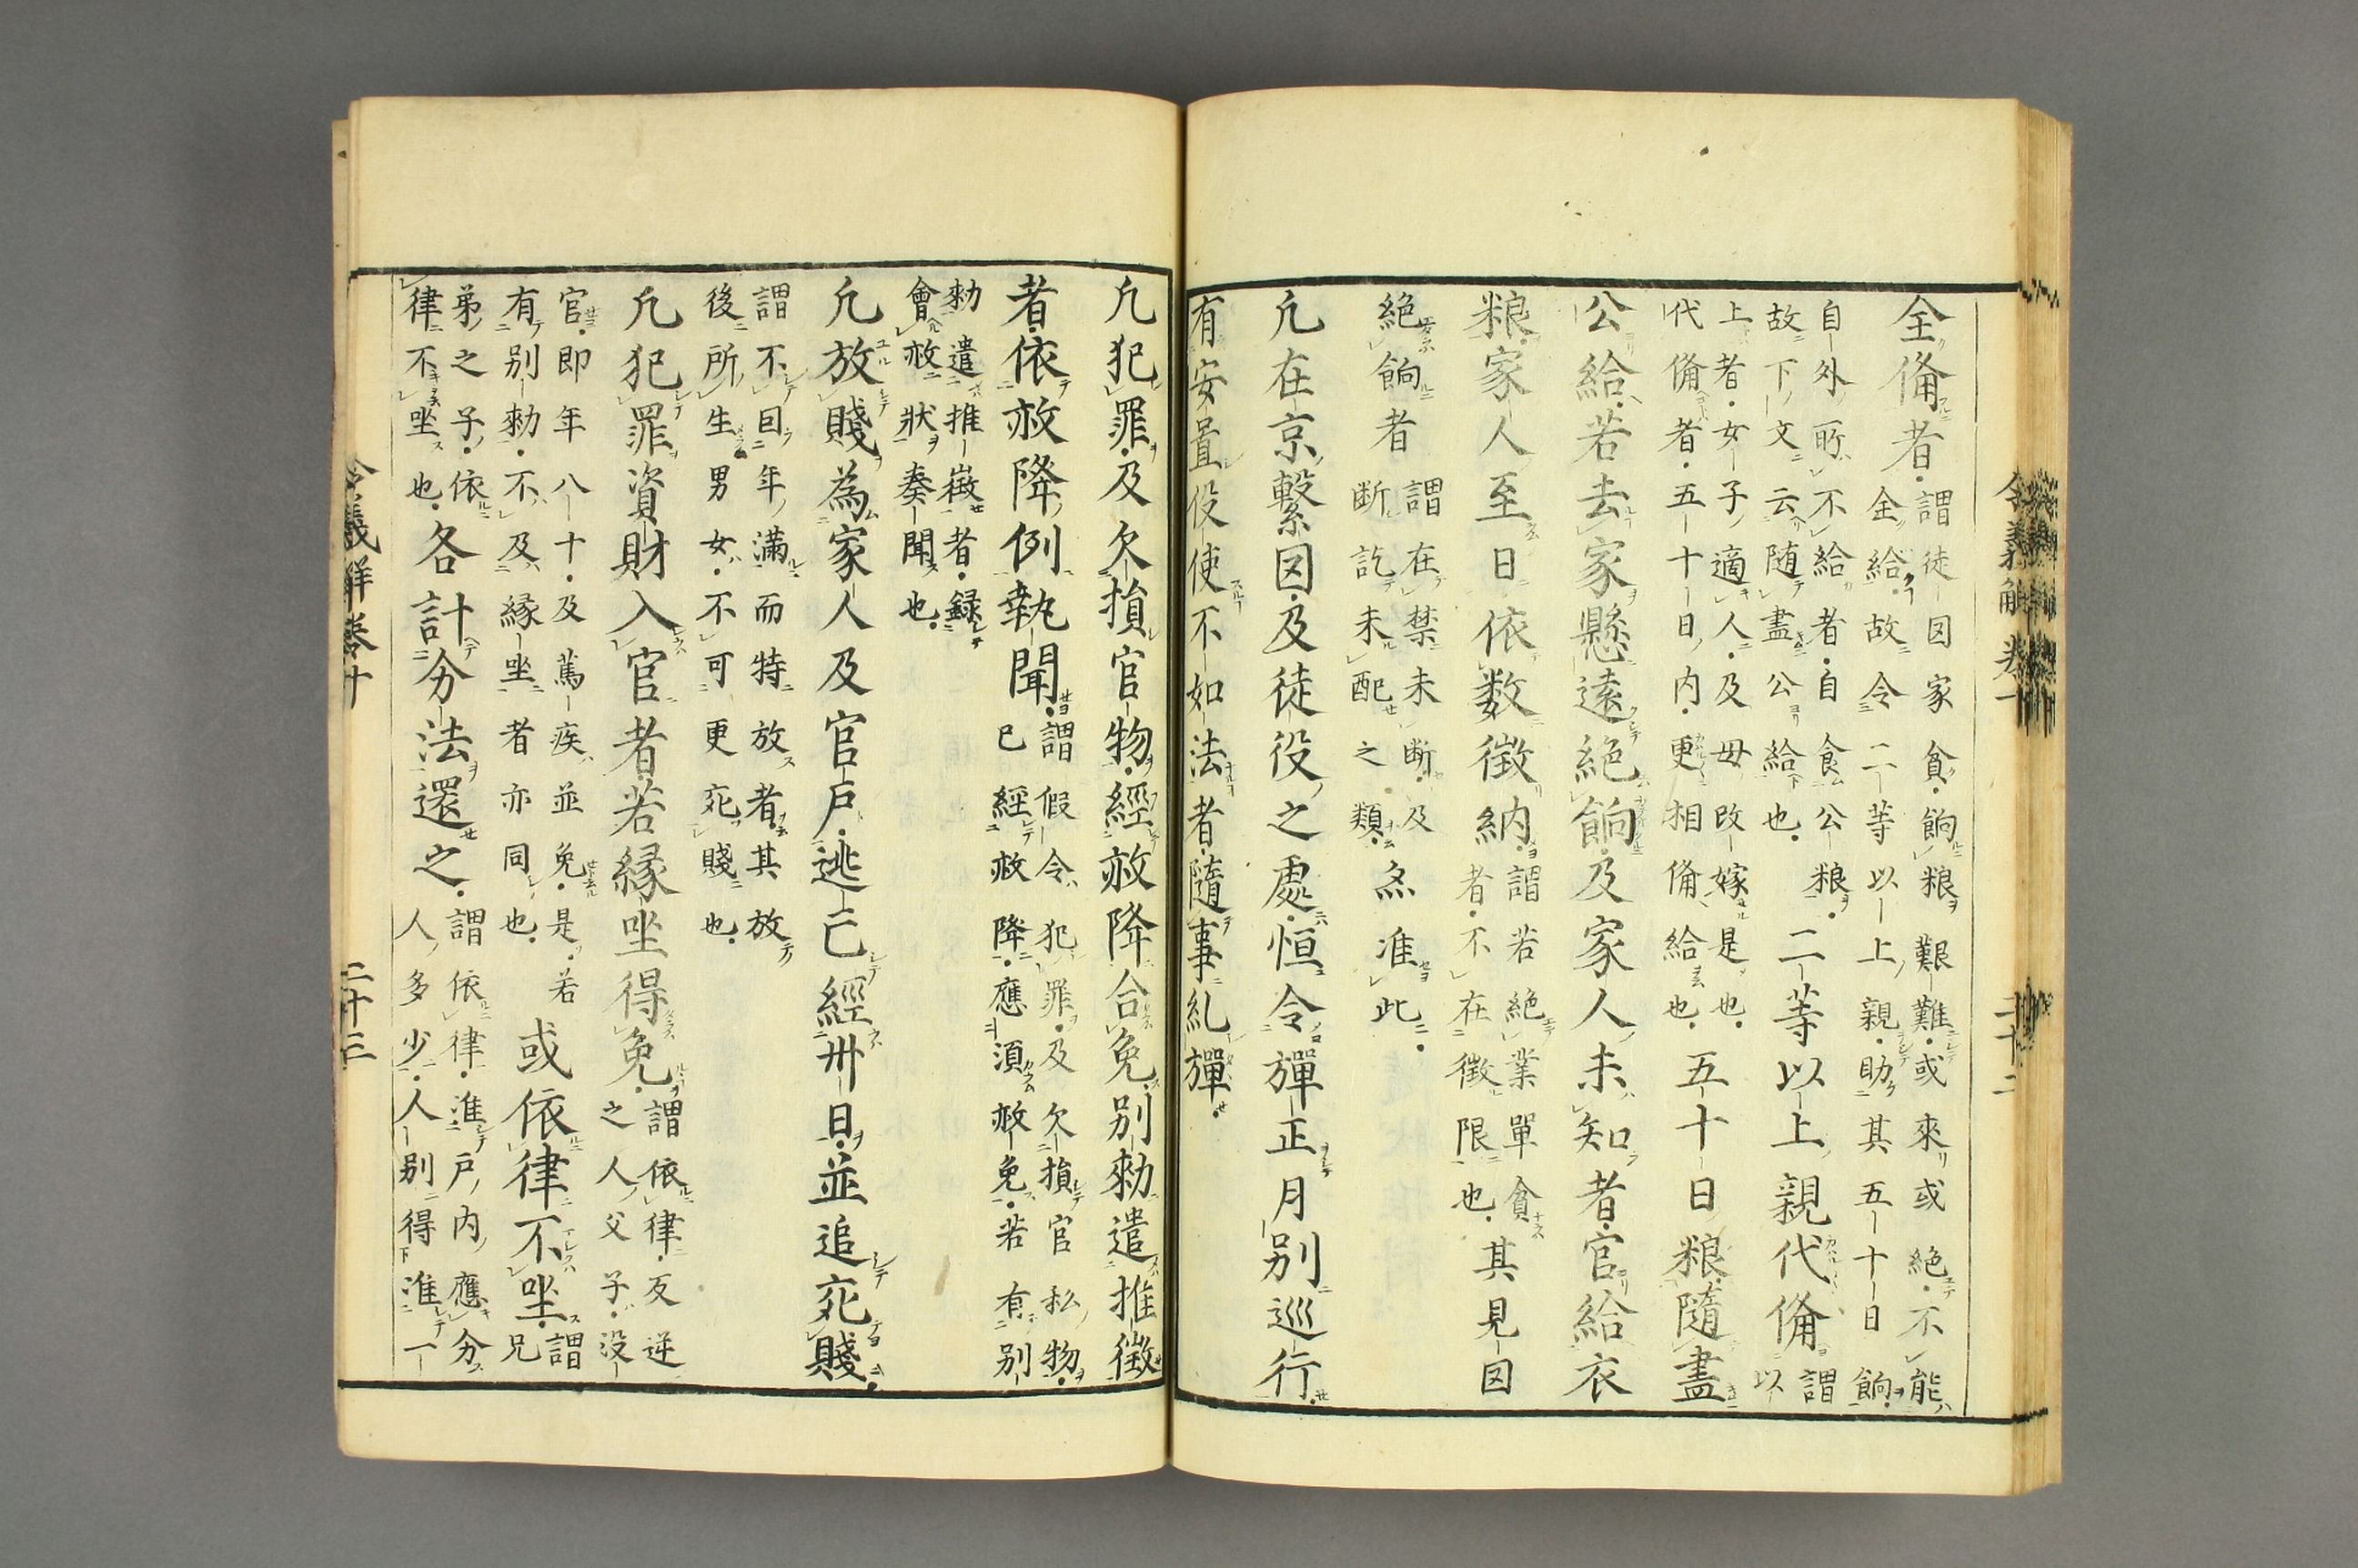 全備者謂徒囚家貧餉粮艱難或來或絶不能全給故令二等以上親助其五十日餉
自外所不給者自食公粮故下文云随盡公給也二等以上親代備謂以
上者女子適人及母改嫁是也代備者五十日内更相備給也五十日粮隨盡
公給若去家懸遠絶餉及家人未知者官給衣
粮家人至日依数徴納謂若絶業單貧者不在徴限也其見囚
絶餉者謂在禁未断及断訖未配之類亦准此
凢在京繋囚及徒役之處恒令彈正月別巡行
有安置役使不如法者隨事糺彈
凢犯罪及欠損官物經赦降合免別勅遣推徴
者依赦降例執聞謂假令犯罪及欠損官私物已經赦降應須赦免若有別
勅遣推徴者録會赦狀奏聞也
凢放賤為家人及官戸逃亡經卅日並追充賤
謂不因年滿而特放者其放後所生男女不可更充賤也
凢犯罪資財入官者若縁坐得免謂依律反逆之人父子没
官即年八十及篤疾並免是若有別勅不及縁坐者亦同也或依律不坐謂兄
弟之子依律不坐也各計分法還之謂依律准戸内應分人多少人別得准一
令義解巻十
二十三